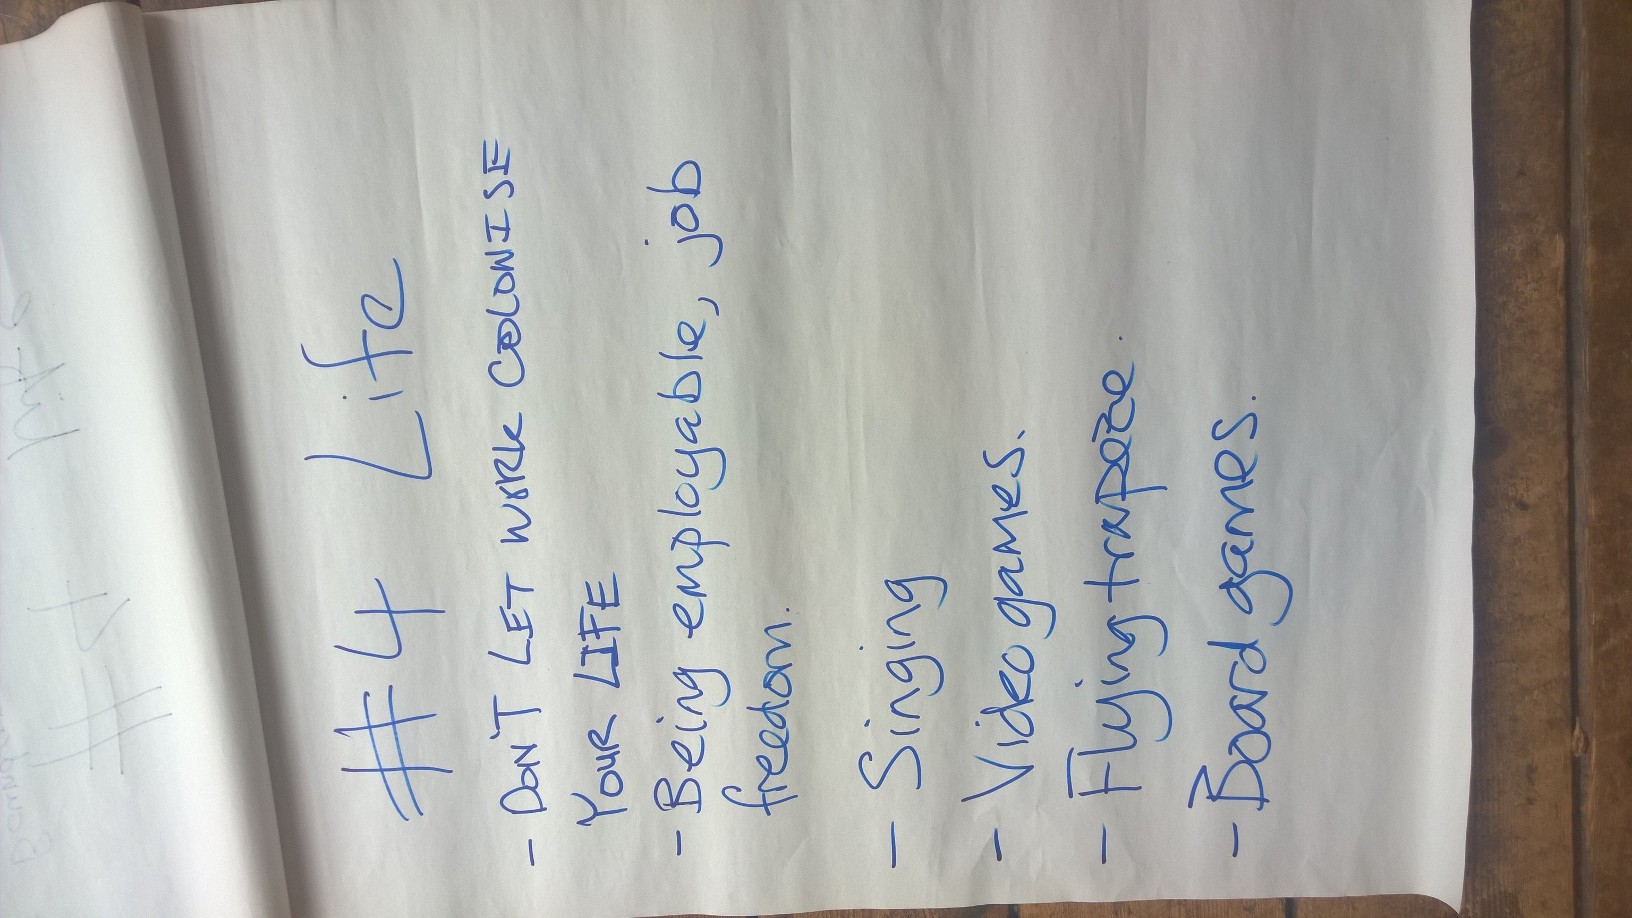 #4 Life
- DON'T LET WORK COLONISE
YOUR LIFE
- Being employable, job
freedom.
- Singing
- Video games.
- Flying trapeze.
- Board games.